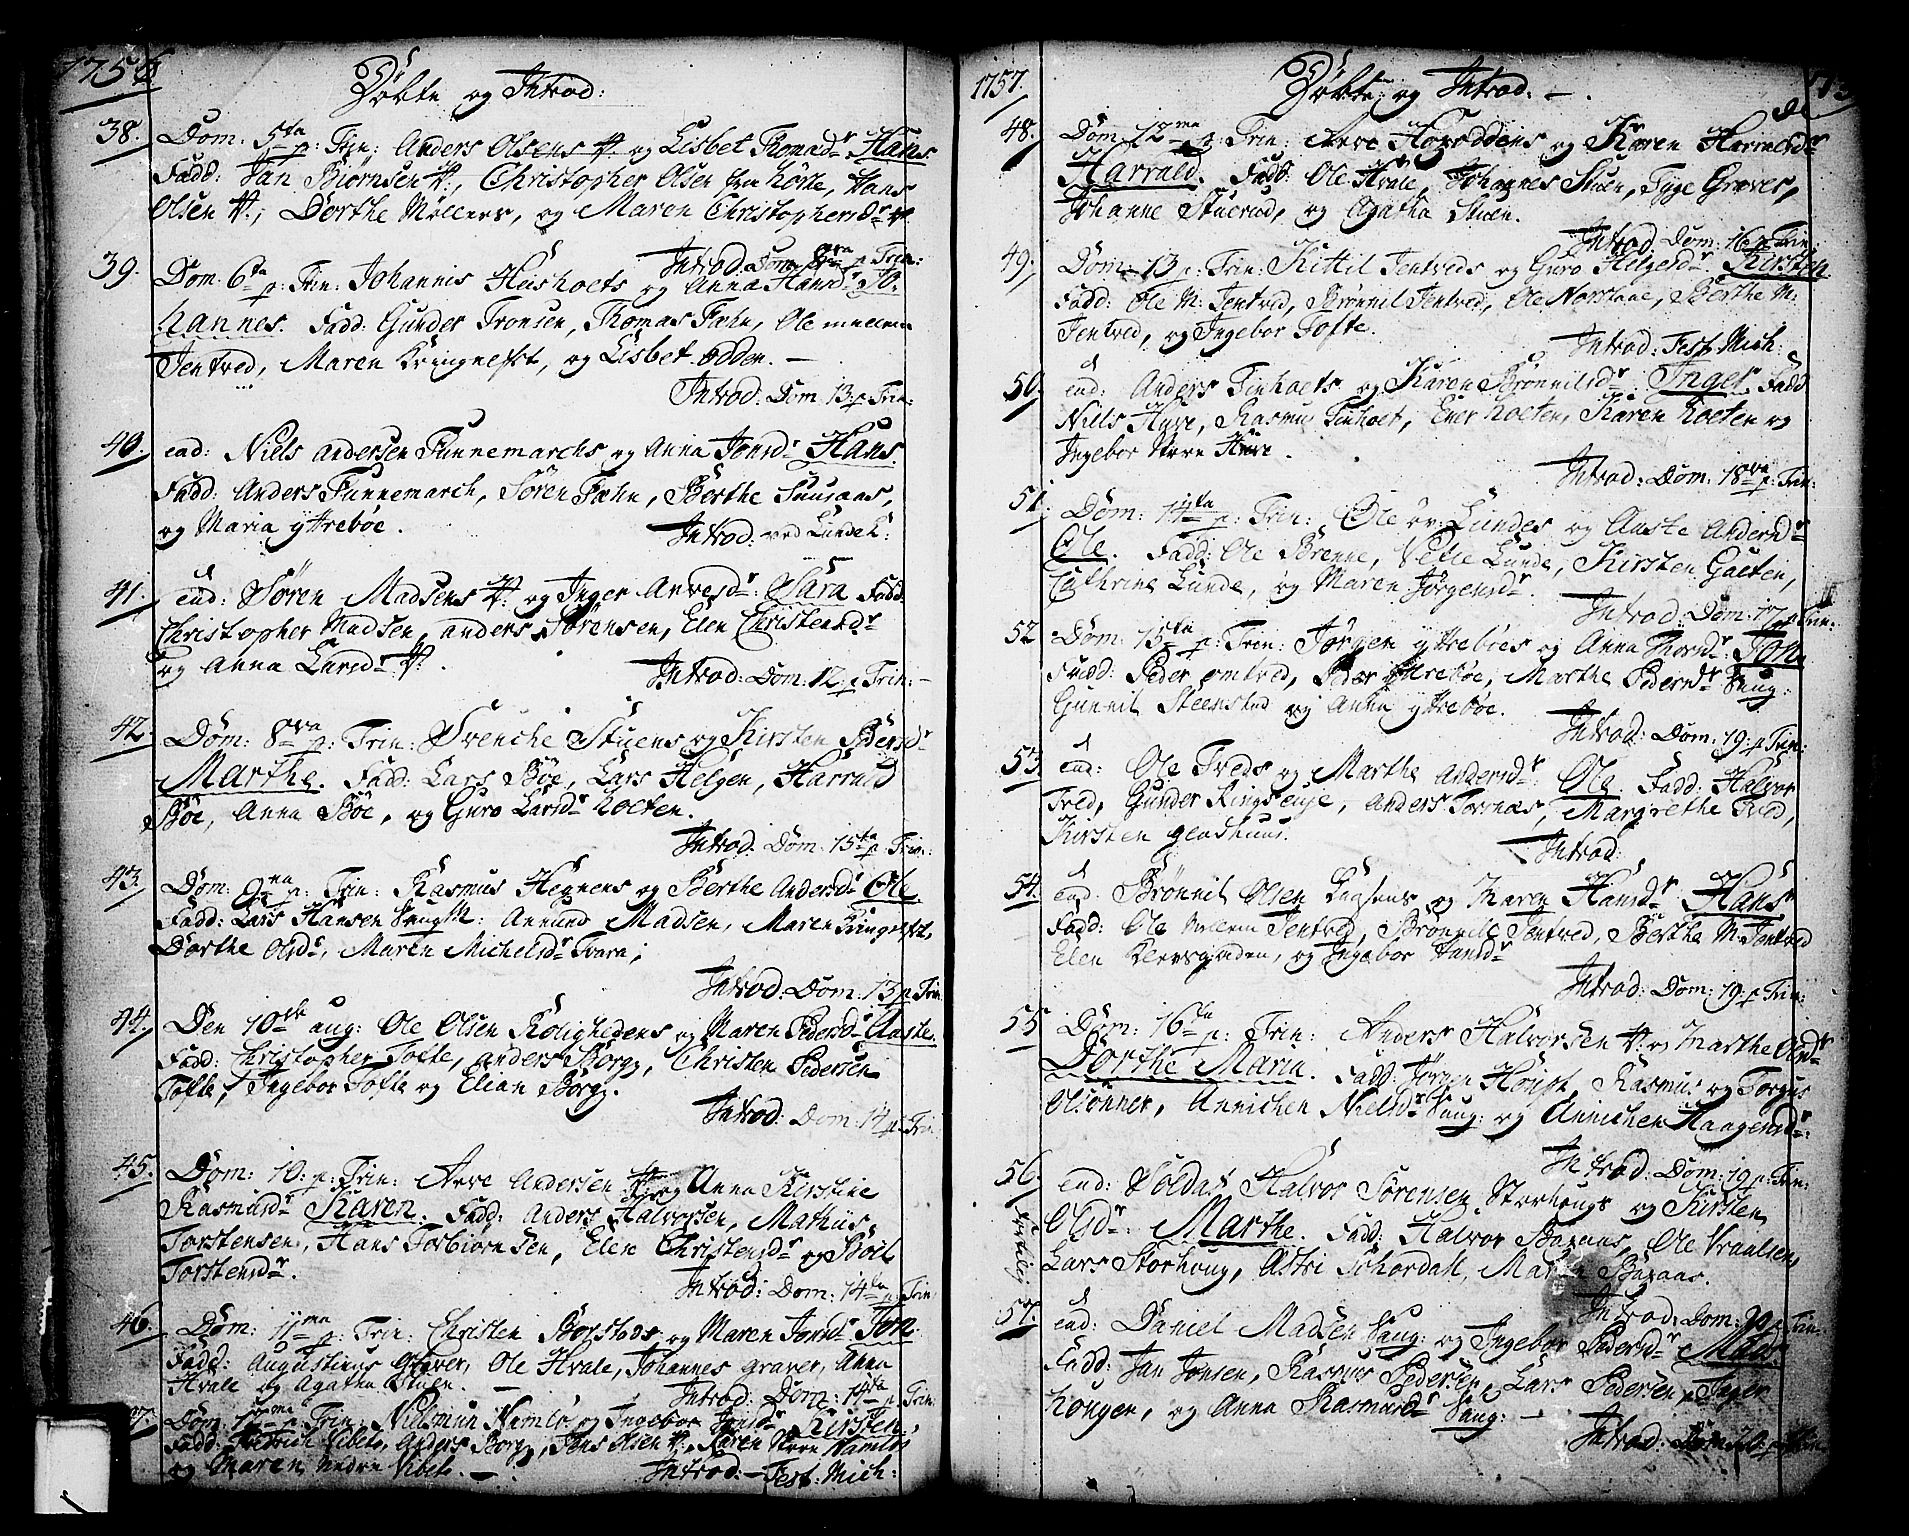 1756
Döbte og Introd:
38. Dom: 5ta p: Trin: Anders Olsens V. og Lisbet Thomasdr Hans
Fadd: Jan Biørnsen V:, Christopher Olsen Hans
Olsen V:, Dorthe Møllers, og Maren Christophersdr
Introd: Dom: 8va p Trin:
39. Dom: 6ta p: Trin: Johannis Huusholts og Anna Hansdr Jo-
hannes. Fadd: Gunder Tronsen, Thomas Fæhn, Ole mellem
Jentved, Maren Kringnelst, og Lisbet Odden. —
Introd: Dom 13. p Trin:
40. ead: Niels Andersen Funnemarchs og Anna Jonsdr Hans.
Fadd: Anders Funnemarch, Søren Fæhn, Berthe Suusaas,
og Maria yttrebøe.
Introd: ved Lunde K:
41. ead: Søren Madsens V: og Inger Arvesdr Sara Fadd:
Christopher Madsen, Anders Sørensen, Elen Christensdr
og Anna Larsdr V:
Introd: Dom: 12. p Trin: —
42. Dom: 8va p: Trin: Svenche Stuens og Kirsten Pedersdr
Marthe. Fadd: Lars Bøe, Lars Helgen, Harrald
Bøe, Anna Bøe, og Guro Larsdr Koeten.
Introd: Dom: 15ta p Trin:
43. Dom: 9na p: Trin: Rasmus Hegnens og Berthe Andersdr Ole
Fadd: Lars Hansen Saug M: Amund Madsen, Maren Kringelst,
Dorthe Olsdr, Maren Michelsdr Tvara;
Introd: Dom: 13 p Trin:
44. Den 10de aug: Ole Olsen Rolighedens og Maren Pedersdr Aaste.
Fadd: Christopher Tofte, anders Borg, Christen Pedersen
Tofte, Ingebor Tofte og Elian Borg.
Introd: Dom: 14 p Trin:
45. Dom: 10: p: Trin: Arve Andersen V: og Anna Kirstine
Rasmusdr Karen. Fadd: Anders Halvorsen, Mathis
Torstensen, Hans Torbiørnsen, Elen Christensdr og Boel
Torstensdr.
Introd: Dom: 14ta p: Trin:
46. Dom: 11ma p: Trin: Christen Bogstads og Maren Jonsdr Jon.
Fadd: Augustinus Graver, Ole Hvale, Johannes graver, Anna
Hvale og Agatha Stuen. —
Introd: Dom: 14ta p: Trin:
47. Dom: p: Trin: Nielsmun Namlø og Ingebor Jonsdr Kirsten.
Fadd: Didrich Vibeto, Anders Borg, Jens Olsen V:, Karen Store Namløs
og Maren Nedre Vibeto. —
Introd: — Fest: Mich:
1757.
Döbte og Introd: —.
48. Dom: 12ma p: Trin: Arve Hogoddens og Karen Harraldsdr
Harrald. Fadd: Ole Hvale, Johannes Stuen, Tyge Graver,
Johanne Stuerud, og Agatha Stuen.
Introd. Dom: 16 p Trin:
49. Dom: 13 p: Trin: Kittil Jentveds og Guro Helgesdr. Kirsten
Fadd: Ole M: Jentved, Brønnil Jentved, Ole Norstaae, Berthe M:
Jentved, og Ingebor Tofte.
Introd: Fest. Mich:
50. ead: Anders Tinhoets og Karen Brønnilsdr. Inger Fadd
Niells Huve, Rasmus Tinhoet, Ener Koeten, Karen Koeten og
Ingebor Store Huve.
Introd: Dom: 18va p: Trin:
51. Dom: 14ta p: Trin: Ole öv: Lundes og Aaste Andersdr
Ole. Fadd: Ole Brenne, Vetle Lunde, Kirsten Gaeten,
Cathrine Lunde, og Maren Jørgensdr.
Introd: Dom: 17 p Trin:
52 Dom: 15ta p: Trin: Jørgen yttrebøes og Anna Thorsdr. Jon.
Fadd: Peder omtved, Peder yttrebøe, Marthe Pedersdr Saug:
Gunnil Steenstad og Anna yttrebøe.
Introd: Dom: 19. p Trin:
53. ead: Ole Tveds og Marthe Andersdr. Ole. Fadd: Halvor
Tved, Gunder Ringseuje, Anders Tornæs, Margrethe Tved,
Kirsten gladhuus.
Introd:
54. ead: Brønnil Olsen og Maren Hansdr. Hans
Fadd: Ole mellem Jentved, Brønnild Jentved, Berthe M: Jentved
Elen Klevsgaden, og Ingebor Hansdr
Introd: Dom: 19. p Trin:
55 Dom: 16ta p: Trin: Anders Halvorsen V: og Marthe Andr
Dorthe Maria. Fadd: Jørgen Houpt, Rasmus og Torgus
Olsönner, Annichen Nielsdr Saug: og Annichen Haagensdr:
Introd: Dom: 19 p: Trin:
56. ead: Soldat Halvor Sørensen Storhougs og Kirsten
Olsdr. Marthe. Fadd: Halvor Baraas, Ole Vraalsen,
Lars Storhoug, Astri Schordall, Maren Baraas.
Introd: Dom: 20 p Trin:
57. ead: Daniel Madsen Saug: og Ingebor Pedersdr Mads.
Fadd: Jan Jonsen, Rasmus Pedersen, Lars Pedersen, Inger
Konger, og Anna Rasmusdr Saug: —
Introd: Dom 20 p Trin: